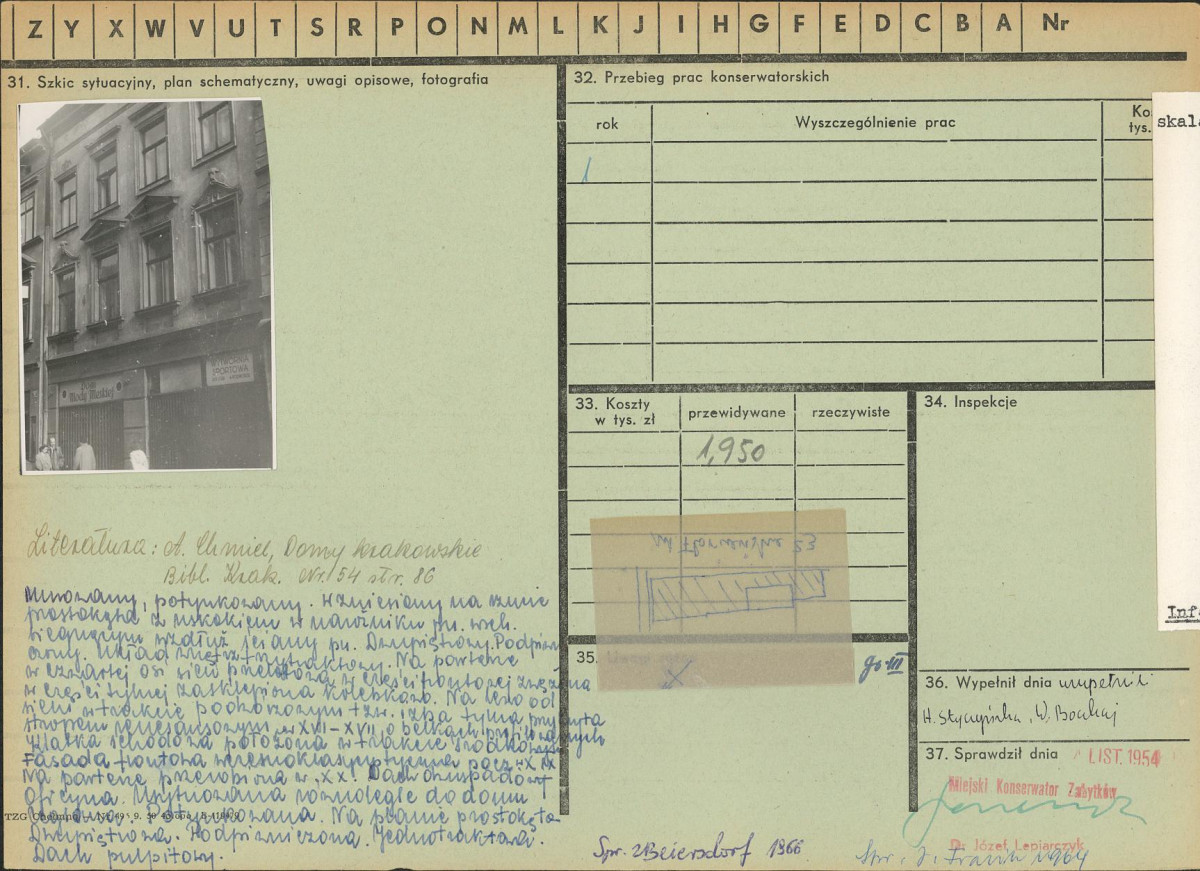 Z Y X W V U T S R P O N M L K J I H G F E D C B A Nr
31. Szkic sytuacyjny, plan schematyczny, uwagi opisowe, fotografia
Dom
Mody Męskiej
WYTWÓRNIA
SPORTOWA
Literatura: A. Chmiel, Domy krakowskie
Bibl. Krak. Nr. 54 str. 86
Murowany, potynkowany. Wzniesiony na rzucie
prostokąta z uskokiem w narożniku pn. wsch.
biegnącym wzdłuż ściany pn. Dwupiętrowy. Podpiwni
czony. Układ wnętrz trytraktowy. Na parterze
w czwartej osi sień przelotowa w części frontowej zwężona
w części tylnej zasklepiona kolebkowo. Na lewo od
sieni w trakcie podworzowym tzw. izba tylna przykryta
stropem renesansowym w XVI-XVII, o belkach profilowanych
Klatka schodowa położona w trakcie środkowym
Fasada frontowa wczesnoklasycystyczna pocz. XIX
Na parterze przerobiona w. XX. Dach dwuspadowy
Oficyna. Usytuowana równolegle do domu
Potynkowana. Na planie prostokąta
Dwupiętrowa. Podpiwniczona. Jednotraktowa.
Dach pulpitowy.
TZG
32. Przebieg prac konserwatorskich
rok
Wyszczególnienie prac
Ko
tys.
skala
33. Koszty
w tys. zł
przewidywane
rzeczywiste
1,950
ul. Floriańska 23
34. Inspekcje
Inf
35.
go III
36. Wypełnił dnia uzupełnił
H. Styczyńska, W. Bochaj
37. Sprawdził dnia
LIST. 1954
Miejski Konserwator Zabytków
Dr Józef Lepiarczyk
Spr. Z Beiersdorf 1966
Spr. J. Frank 1964